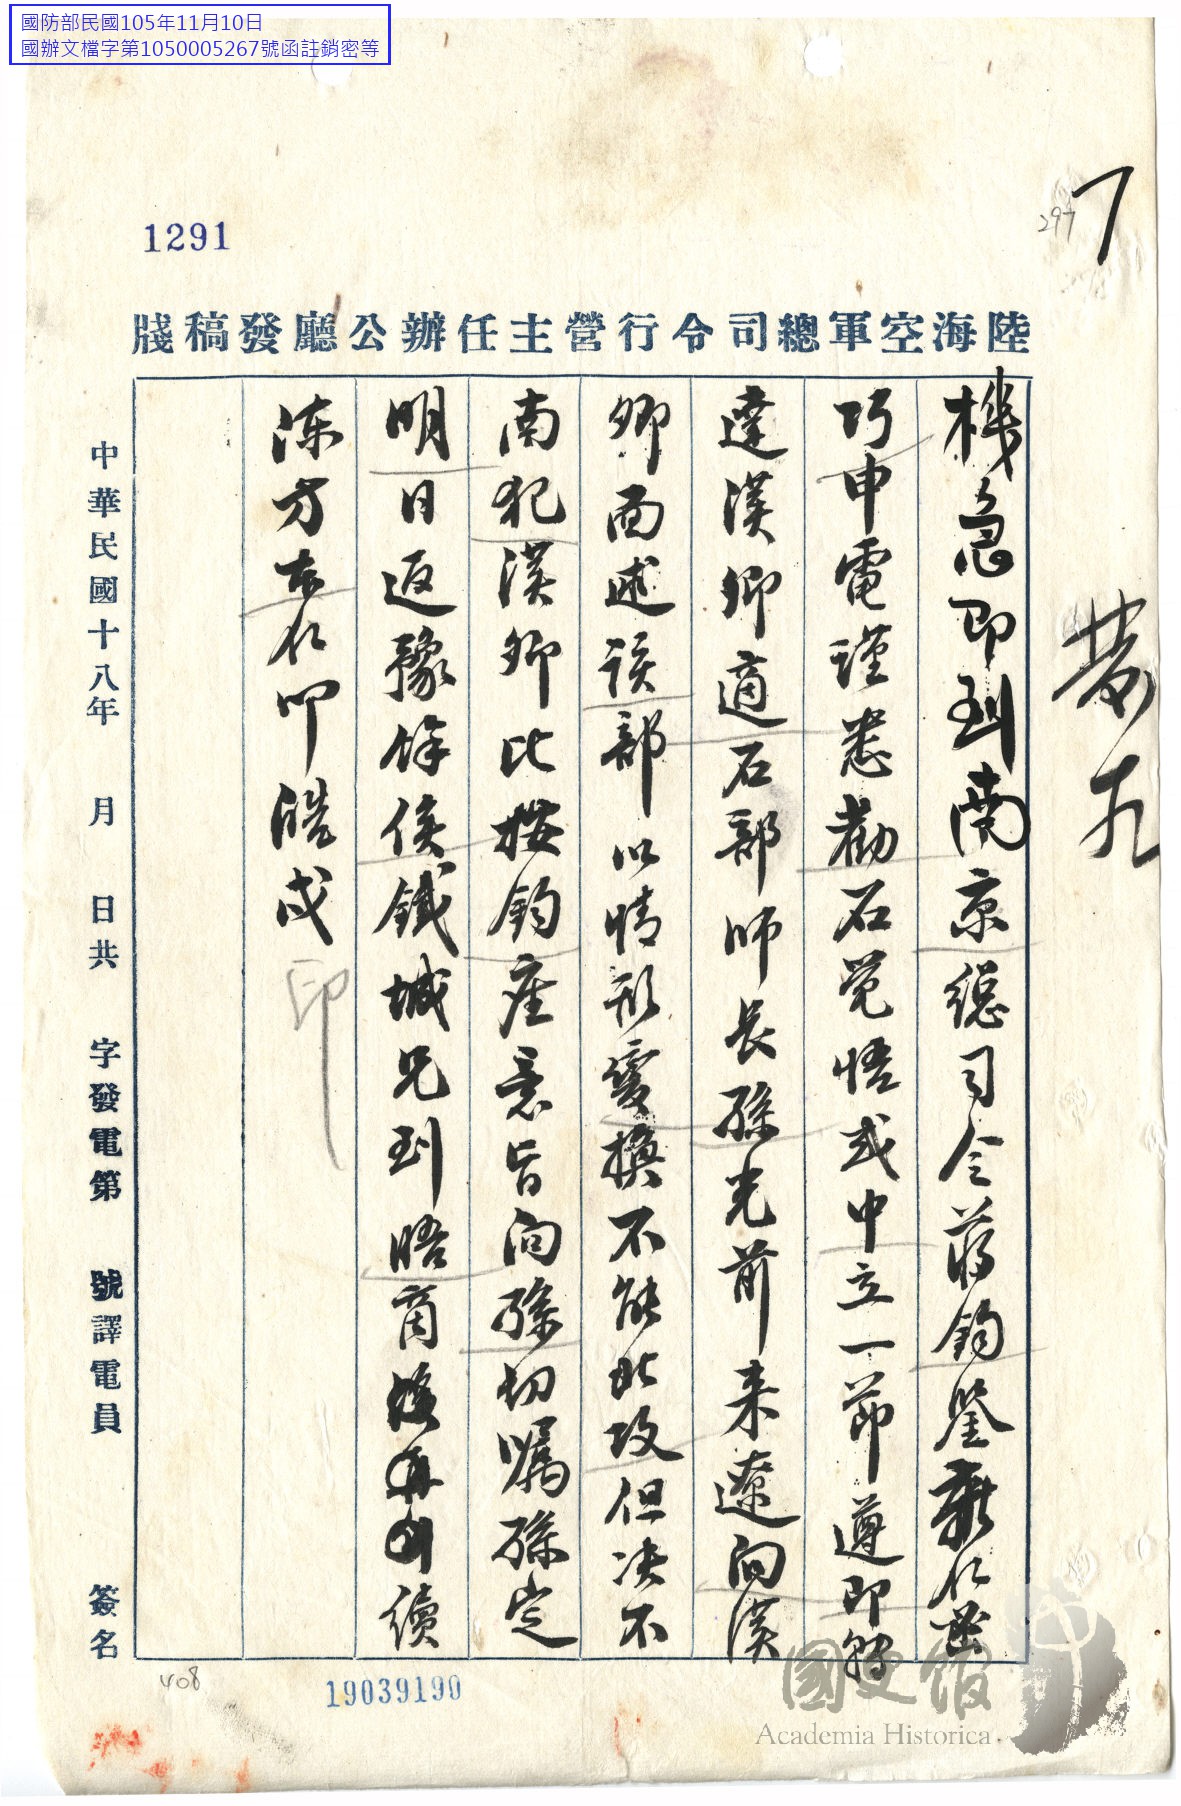 國防部民國105年11月10日
國辦文檔字第1050005267號函註銷密等
1291
297
7
陸海空軍總司令行營主任辦公廳發稿牋
機急即到南京總司令蔣鈞鑒新仁密
巧申電謹悉勸石覺悟或中立一節遵即轉
達漢卿適石部師長孫光前來遼向漢
卿面述該部以情形變換不能北攻但决不
南犯漢卿比按鈞座意旨向孫切囑孫定
明日返豫餘俟鐵城兄到晤商後再續
陳方本仁叩皓戌印
中華民國十八年 月 日共 字發電第 號譯電員 簽名
408
19039190
國史館
Academia Historica